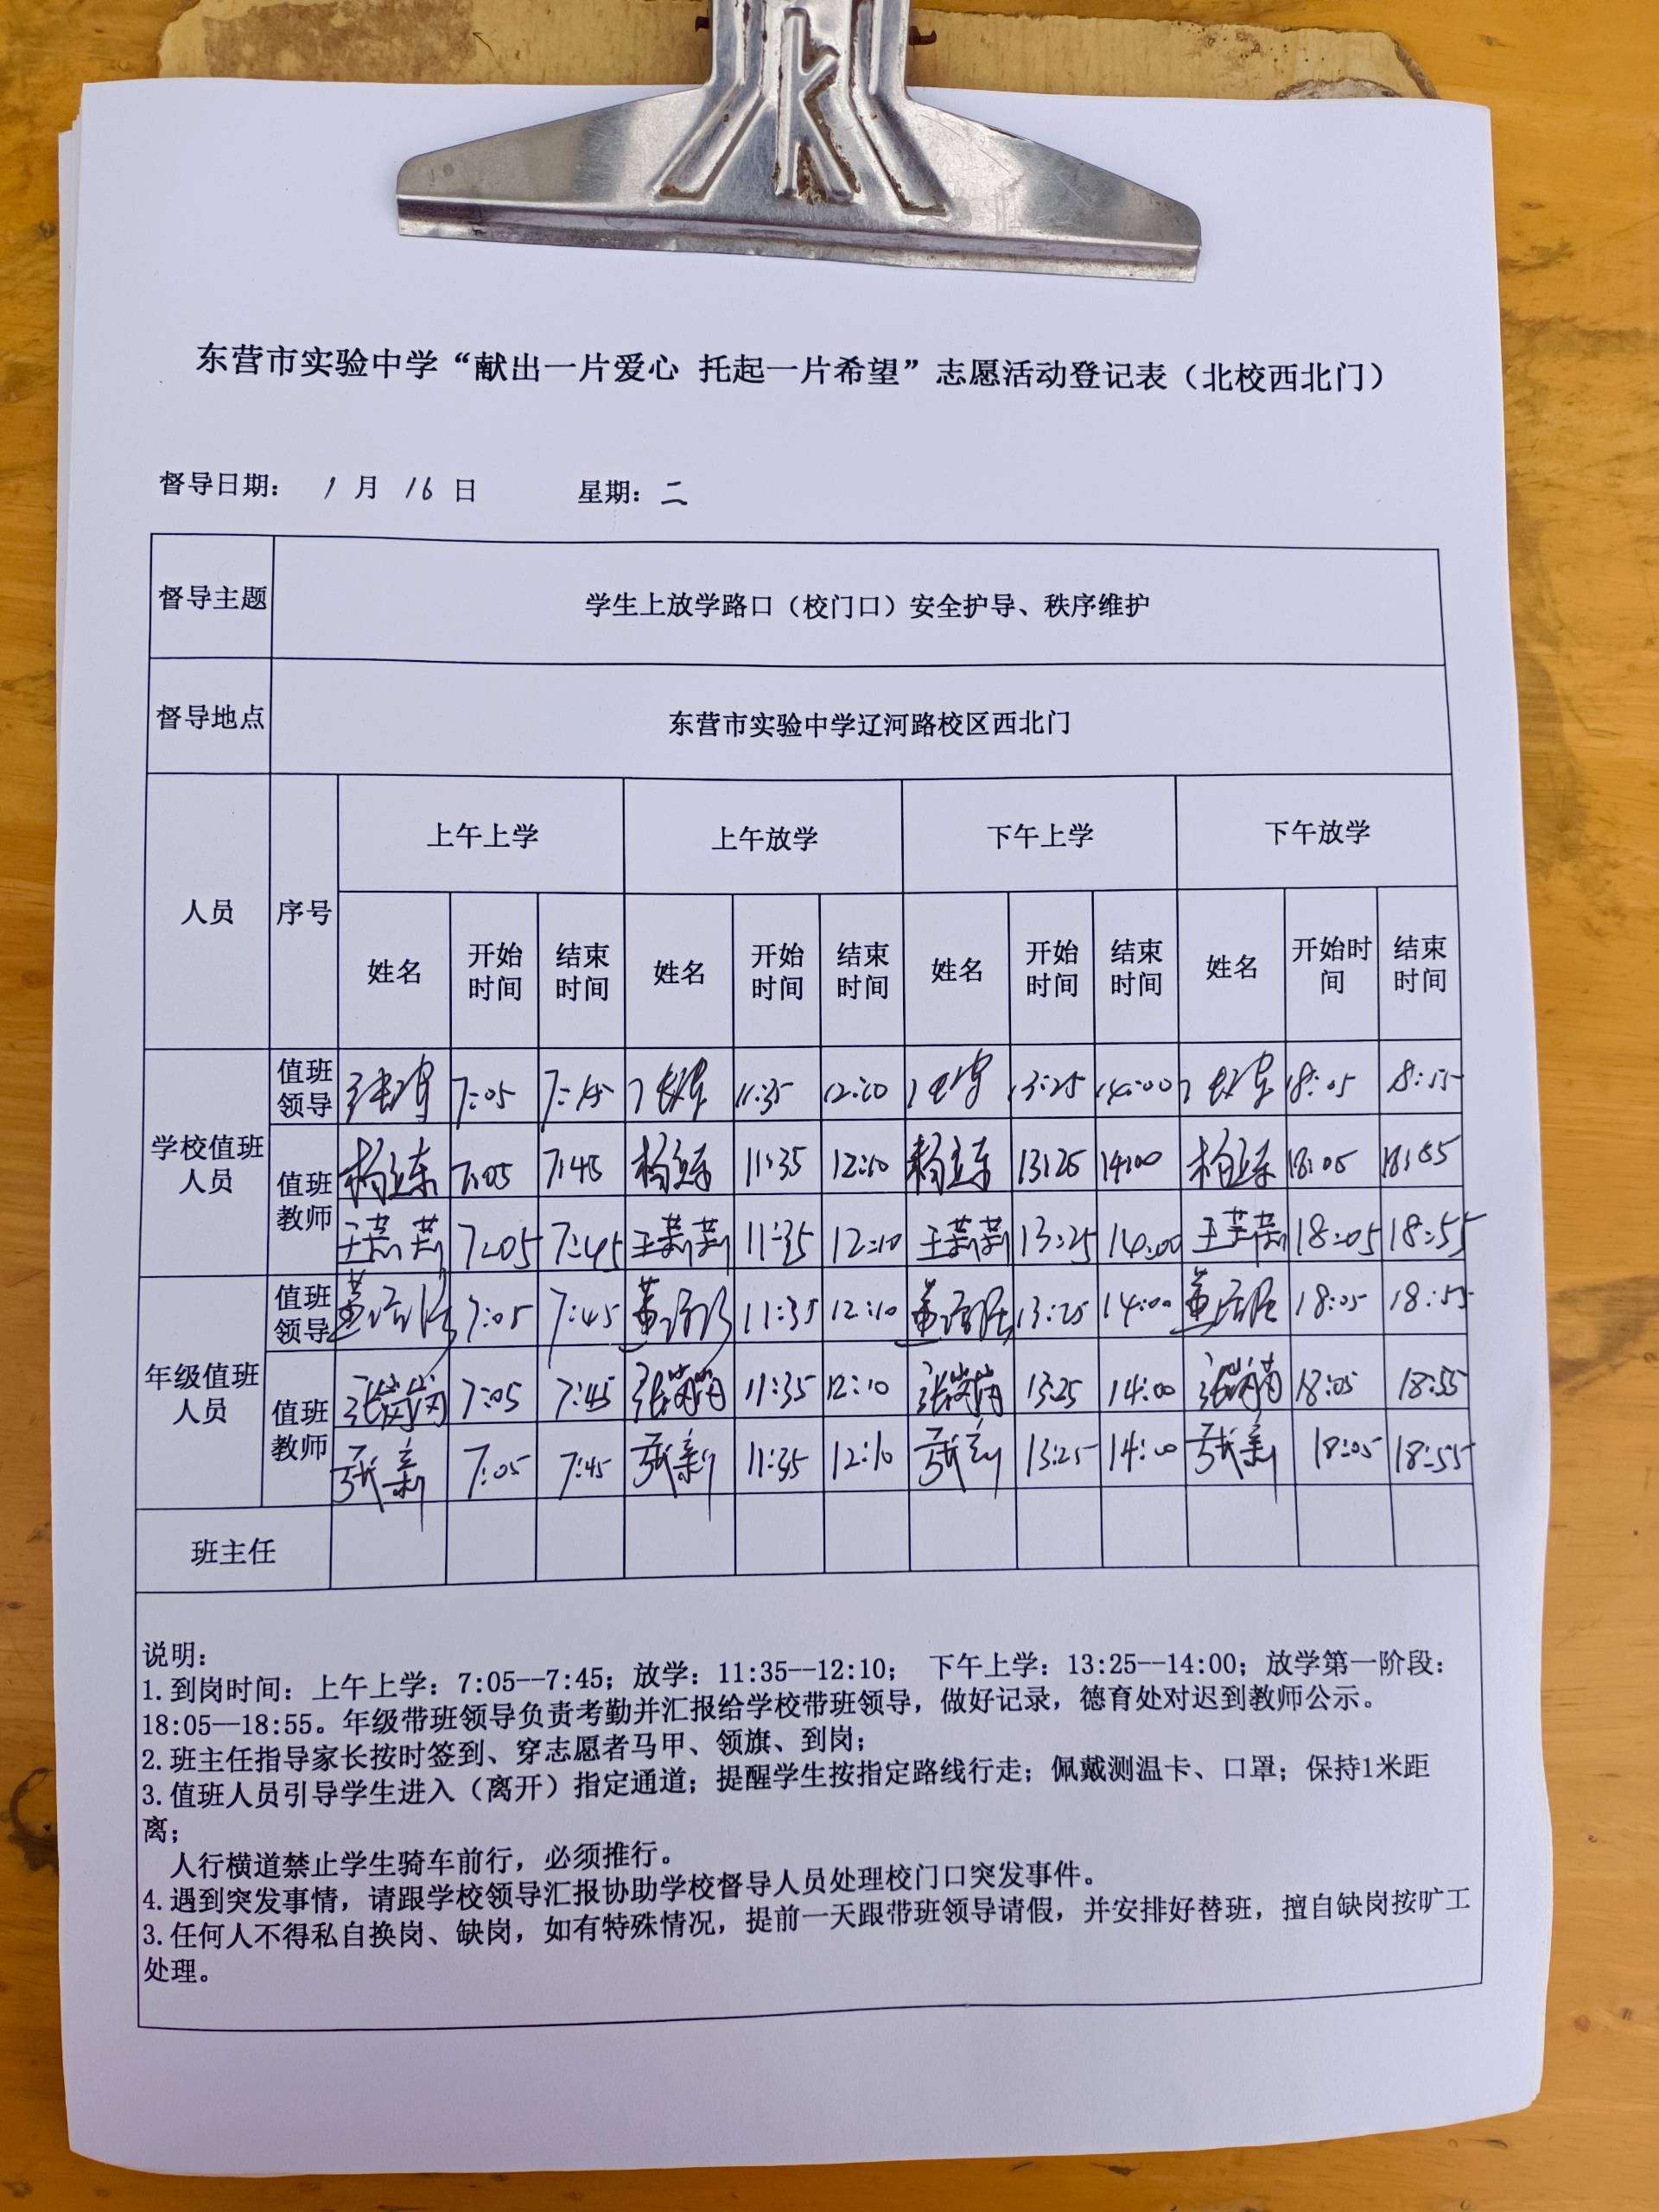 东营市实验中学“献出一片爱心 托起一片希望”志愿活动登记表（北校西北门）
督导日期： 1 月 16 日 星期：二
督导主题 学生上放学路口（校门口）安全护导、秩序维护
督导地点 东营市实验中学辽河路校区西北门
人员 序号 上午上学 上午放学 下午上学 下午放学
姓名 开始时间 结束时间 姓名 开始时间 结束时间 姓名 开始时间 结束时间 姓名 开始时间 结束时间
学校值班人员 值班领导 7:05 7:45 11:35 12:10 13:25 14:00 18:05 18:55
值班教师 7:05 7:45 11:35 12:10 13:25 14:00 18:05 18:55
王莉莉 7:05 7:45 王莉莉 11:35 12:10 王莉莉 13:25 14:00 王莉莉 18:05 18:55
年级值班人员 值班领导 7:05 7:45 11:35 12:10 13:25 14:00 18:05 18:55
值班教师 7:05 7:45 11:35 12:10 13:25 14:00 18:05 18:55
张新 7:05 7:45 张新 11:35 12:10 张新 13:25 14:00 张新 18:05 18:55
班主任
说明：
1.到岗时间：上午上学：7:05--7:45；放学：11:35--12:10； 下午上学：13:25--14:00；放学第一阶段：
18:05--18:55。年级带班领导负责考勤并汇报给学校带班领导，做好记录，德育处对迟到教师公示。
2.班主任指导家长按时签到、穿志愿者马甲、领旗、到岗；
3.值班人员引导学生进入（离开）指定通道；提醒学生按指定路线行走；佩戴测温卡、口罩；保持1米距
离；
人行横道禁止学生骑车前行，必须推行。
4.遇到突发事情，请跟学校领导汇报协助学校督导人员处理校门口突发事件。
3.任何人不得私自换岗、缺岗，如有特殊情况，提前一天跟带班领导请假，并安排好替班，擅自缺岗按旷工
处理。